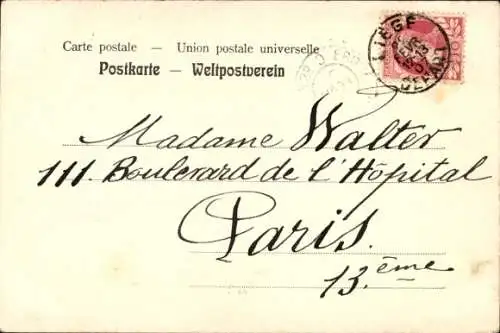 Carte postale — Union postale universelle
Postkarte — Weltpostverein
LIÈGE
DÉPART
Madame Walter
111. Boulevard de l'Hôpital
Paris.
13.ème